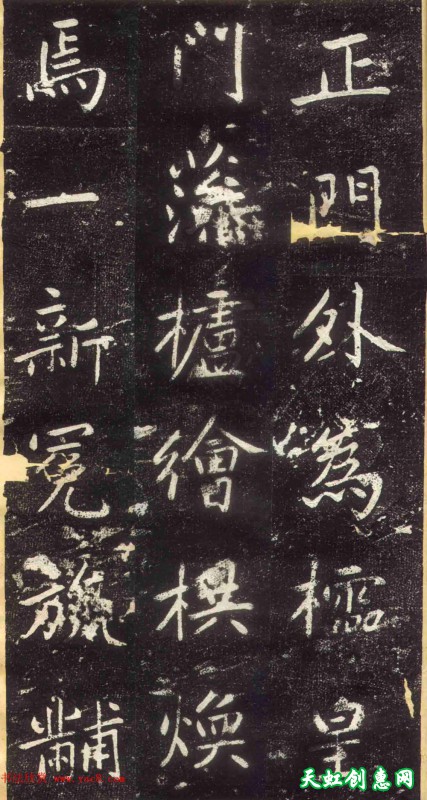 正門外為櫺星
門櫨繪栱煥
焉一新冕旒黼
天虹创惠网